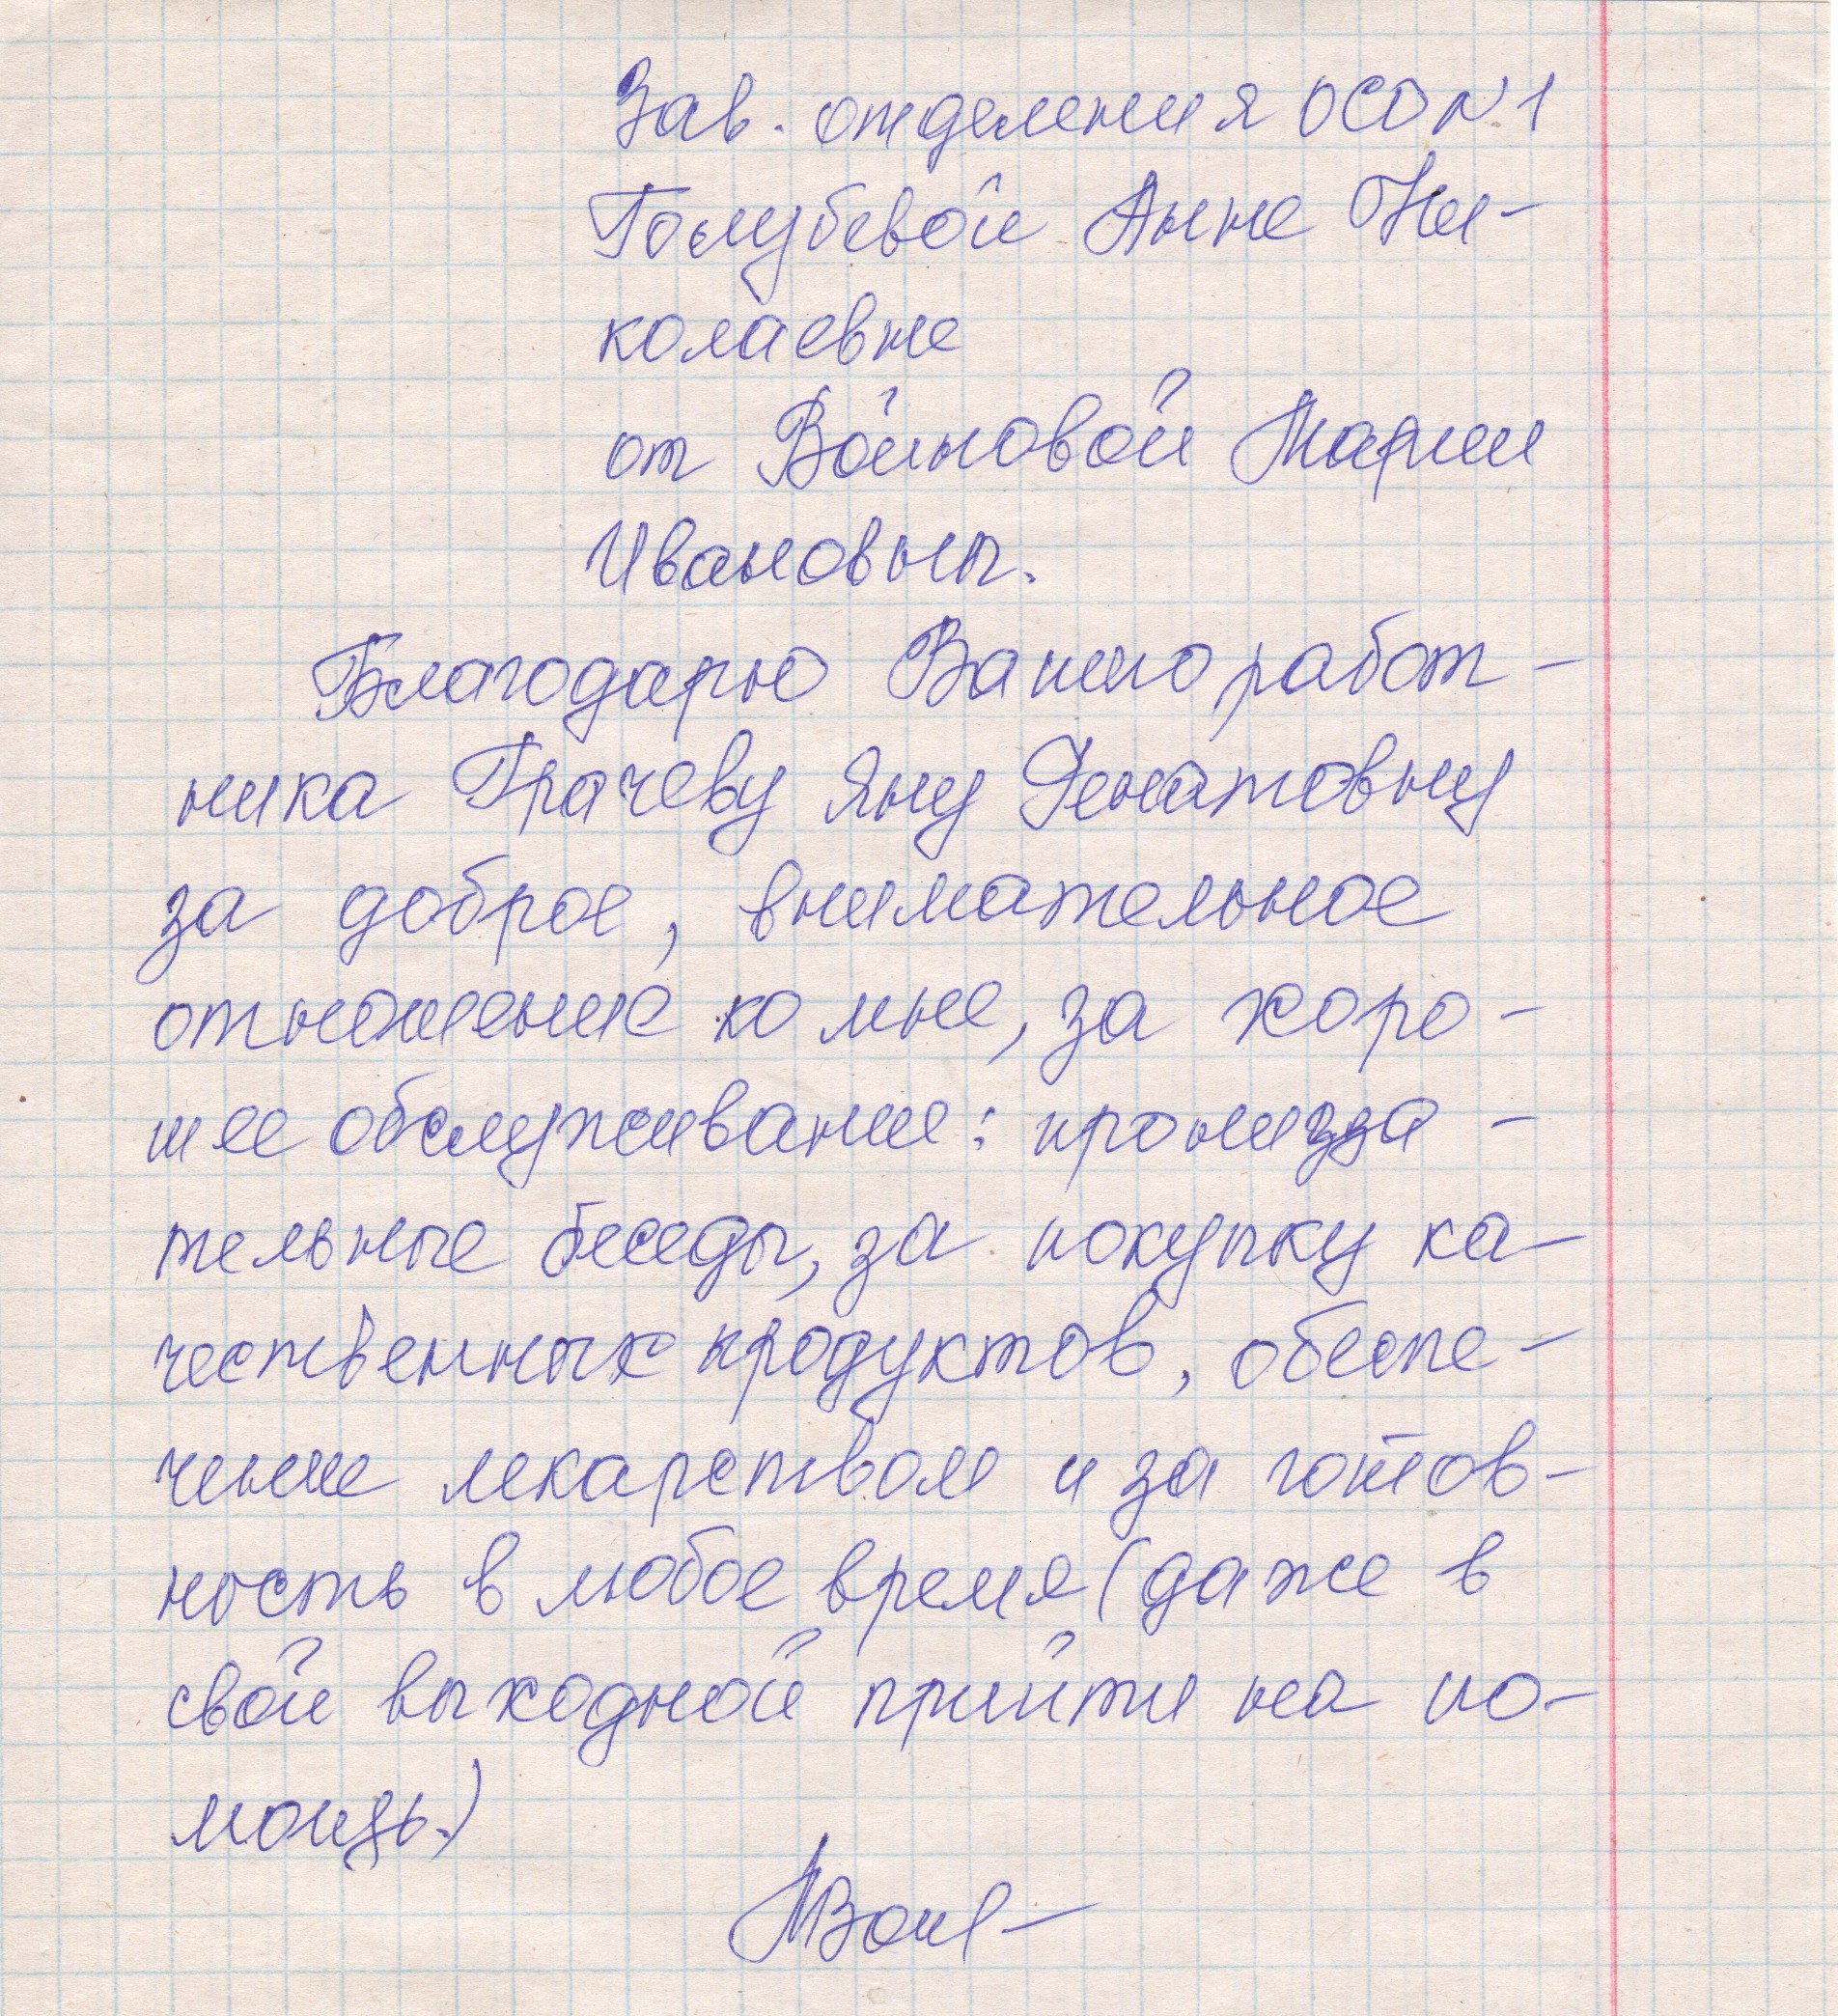 Зав. отделения ОСО N 1
Голубевой Анне Ни-
колаевне
от Войновой Марии
Ивановны.
Благодарю Вашего работ-
ника Грачеву Яну Ренатовну
за доброе, внимательное
отношение ко мне, за хоро-
шее обслуживание: прониза-
тельные беседы, за покупку ка-
чественных продуктов, обеспе-
чение лекарством и за готов-
ность в любое время (даже в
свой выходной прийти на по-
мощь.)